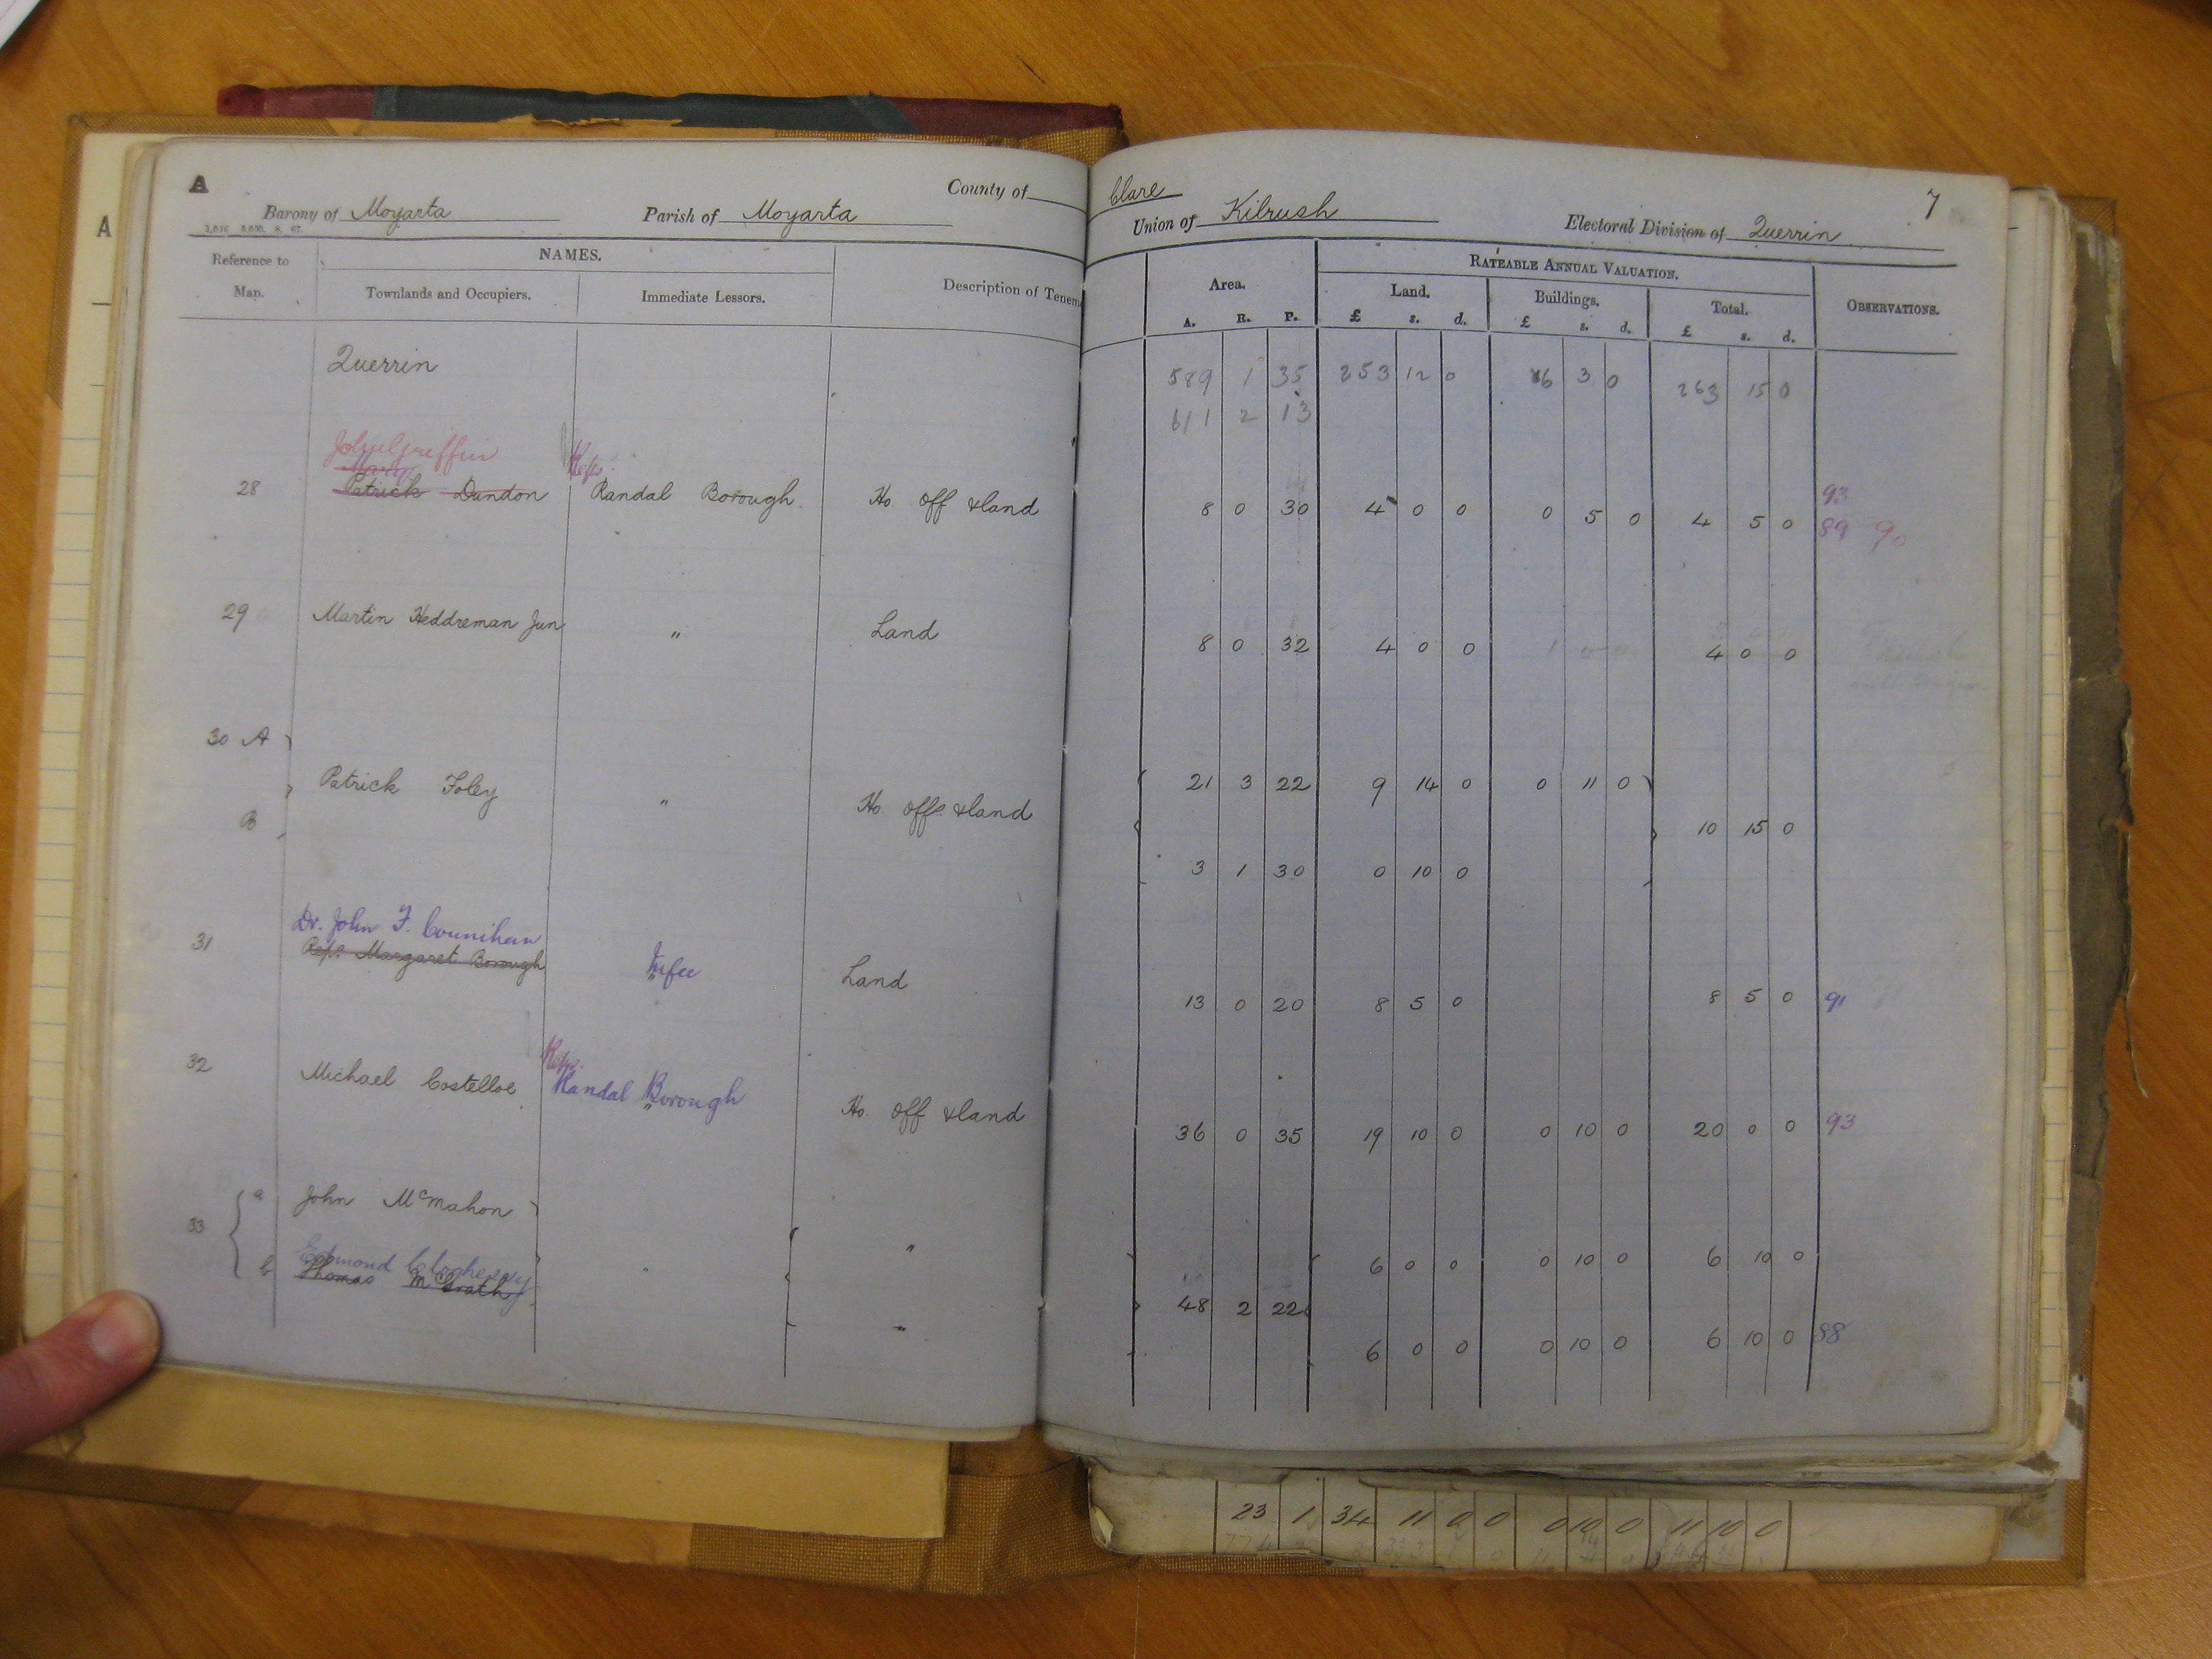 A
A
County of Clare
7
Barony of Moyarta Parish of Moyarta Union of Kilrush Electoral Division of Querrin
Reference to Map. NAMES. Description of Tenem Area. RATEABLE ANNUAL VALUATION. OBSERVATIONS.
Townlands and Occupiers. Immediate Lessors. Land. Buildings. Total.
A. R. P. £ s. d. £ s. d. £ s. d.
Querrin 589 1 35 253 12 0 3 0 263 15 0
611 2 13
John Griffin
Mary Reps.
28 Patrick Dundon Randal Borough. Ho. Off &land 8 0 30 4 0 0 0 5 0 4 5 0 93
89 90
29 Martin Heddreman Jun " Land 8 0 32 4 0 0 4 0 0
30 A 21 3 22 9 14 0 0 11 0
Patrick Foley " Ho. Offs &land 10 15 0
B 3 1 30 0 10 0
Dr. John F. Counihan
31 Reps Margaret Borough Infee Land 13 0 20 8 5 0 8 5 0 91
Reps.
32 Michael Costelloe Randal Borough " Ho. Off &land 36 0 35 19 10 0 0 10 0 20 0 0 93
33 a John McMahon " 6 0 0 0 10 0 6 10 0
Edmond Cloghessy " 48 2 22
b Thomas McGrath " 6 0 0 0 10 0 6 10 0 88
23 1 34 11 0 0 0 10 0 11 10 0